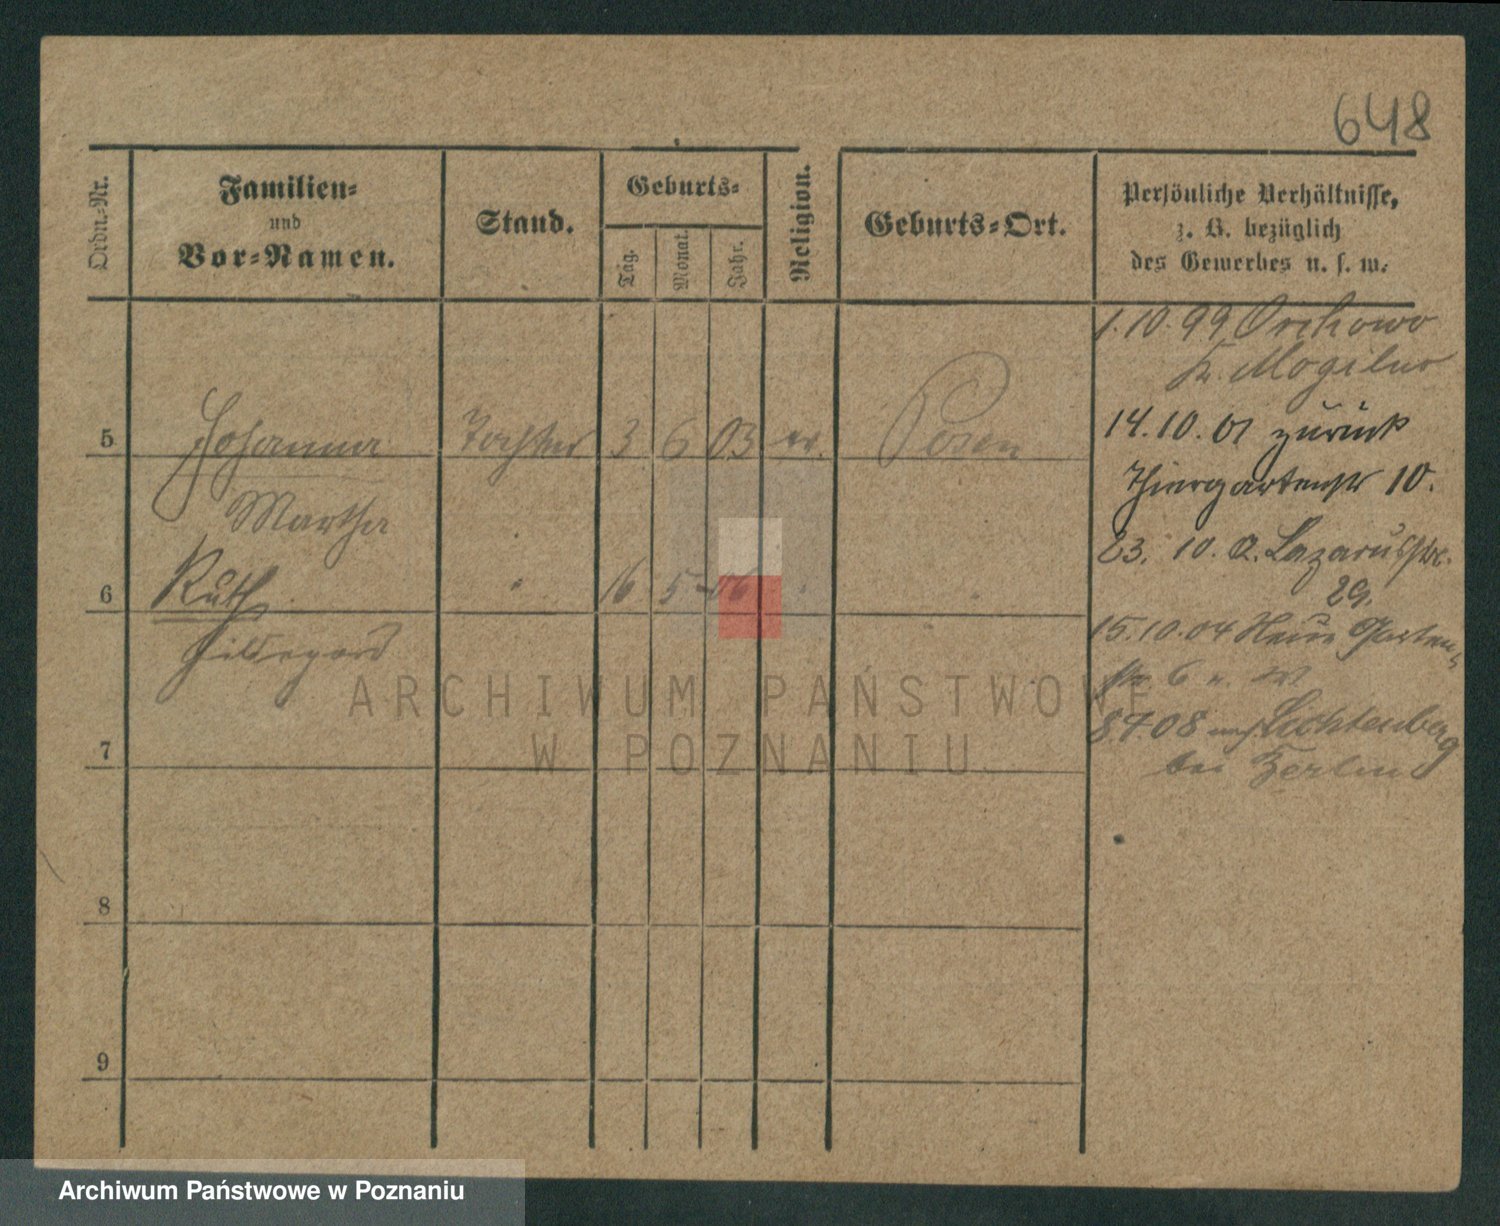 648
Ordn.-Nr.
Familien-
und
Vor-Namen.
Stand.
Geburts-
Tag.
Monat.
Jahr.
Religion.
Geburts-Ort.
Persönliche Verhältnisse,
z. B. bezüglich
des Gewerbes u. s. w.
1.10.99 Orchowo
Kr. Mogilno
5 Johanna Tochter 3 6 03 ev. Posen
Martha
14.10.01 zurück
Thiergartenstr 10.
23. 10. Lazarusstr.
29.
6 Ruth " 16 5 06 " "
Hildegard
15.10.04 Neue Garten-
str. 6
8.4 08 nach Lichtenberg
bei Berlin
7
8
9
ARCHIWUM PAŃSTWOWE
W POZNANIU
Archiwum Państwowe w Poznaniu